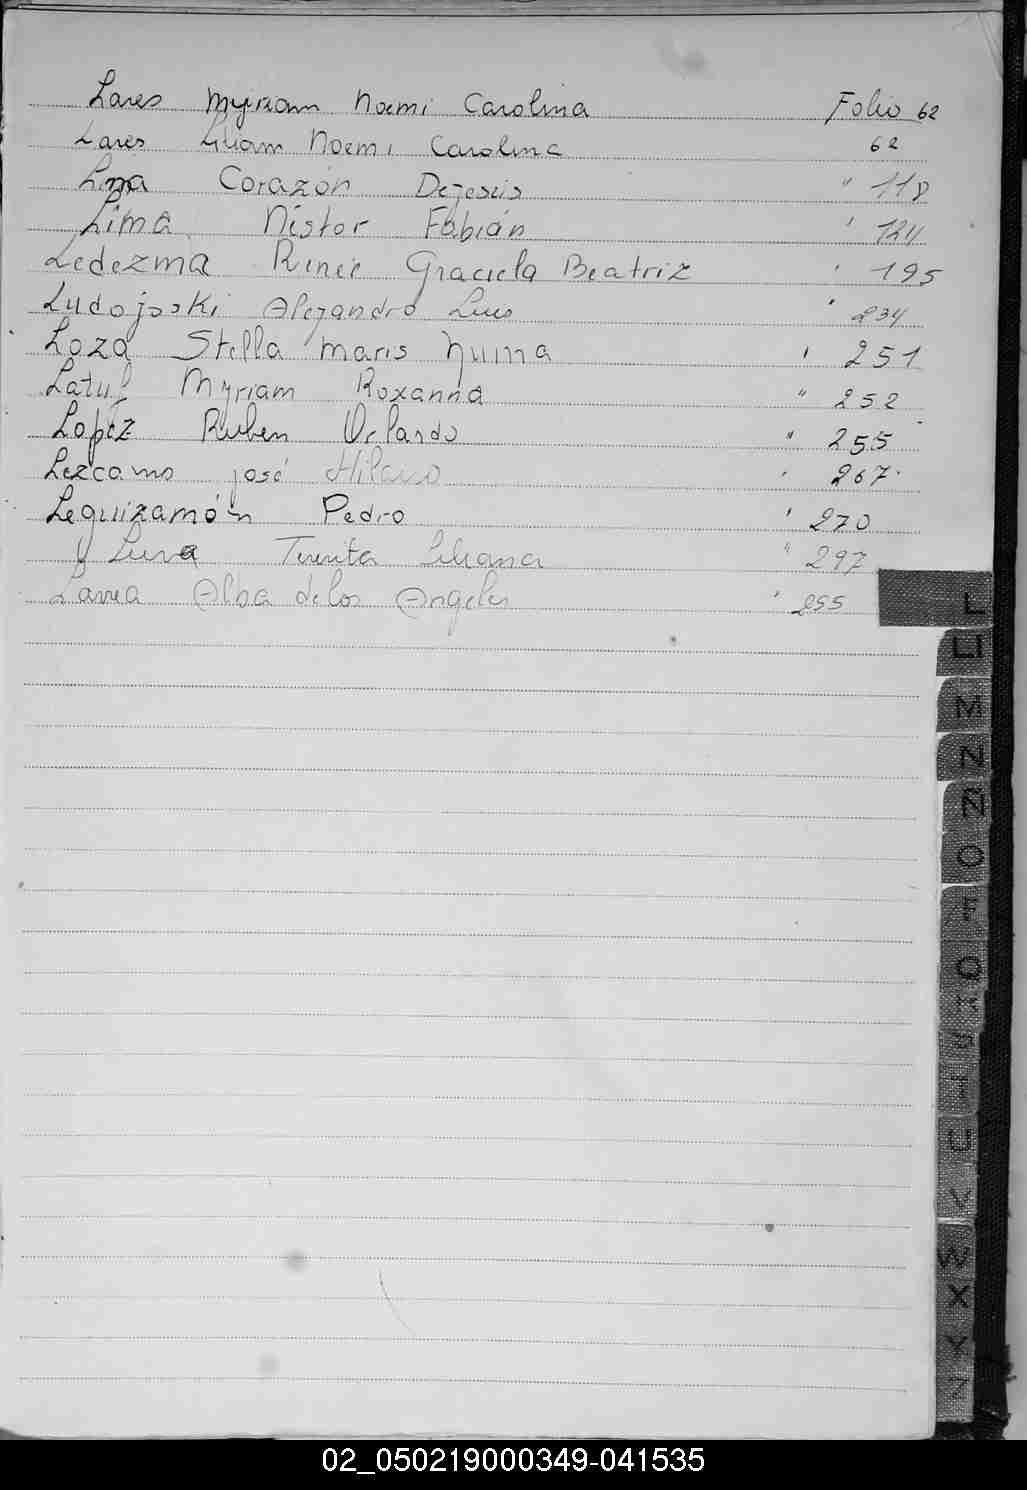 Lares Myriam Noemi Carolina Folio 62
Lares Liliam Noemi Carolina 62
Corazón Dejesús " 118
Lima Néstor Fabián " 124
Ledezma Reneé Graciela Beatriz " 195
Ludojoski Alejandro Luis " 234
Loza Stella Maris " 251
Latuf Myriam Roxanna " 252
Lopez Ruben Orlando " 255
Lezcamo José Hilario " 267
Leguizamón Pedro " 270
Luna Liliana " 297
Alba de los Angeles " 255
L
LL
M
N
Ñ
O
P
Q
R
S
T
U
V
W
X
Y
Z
02_050219000349-041535